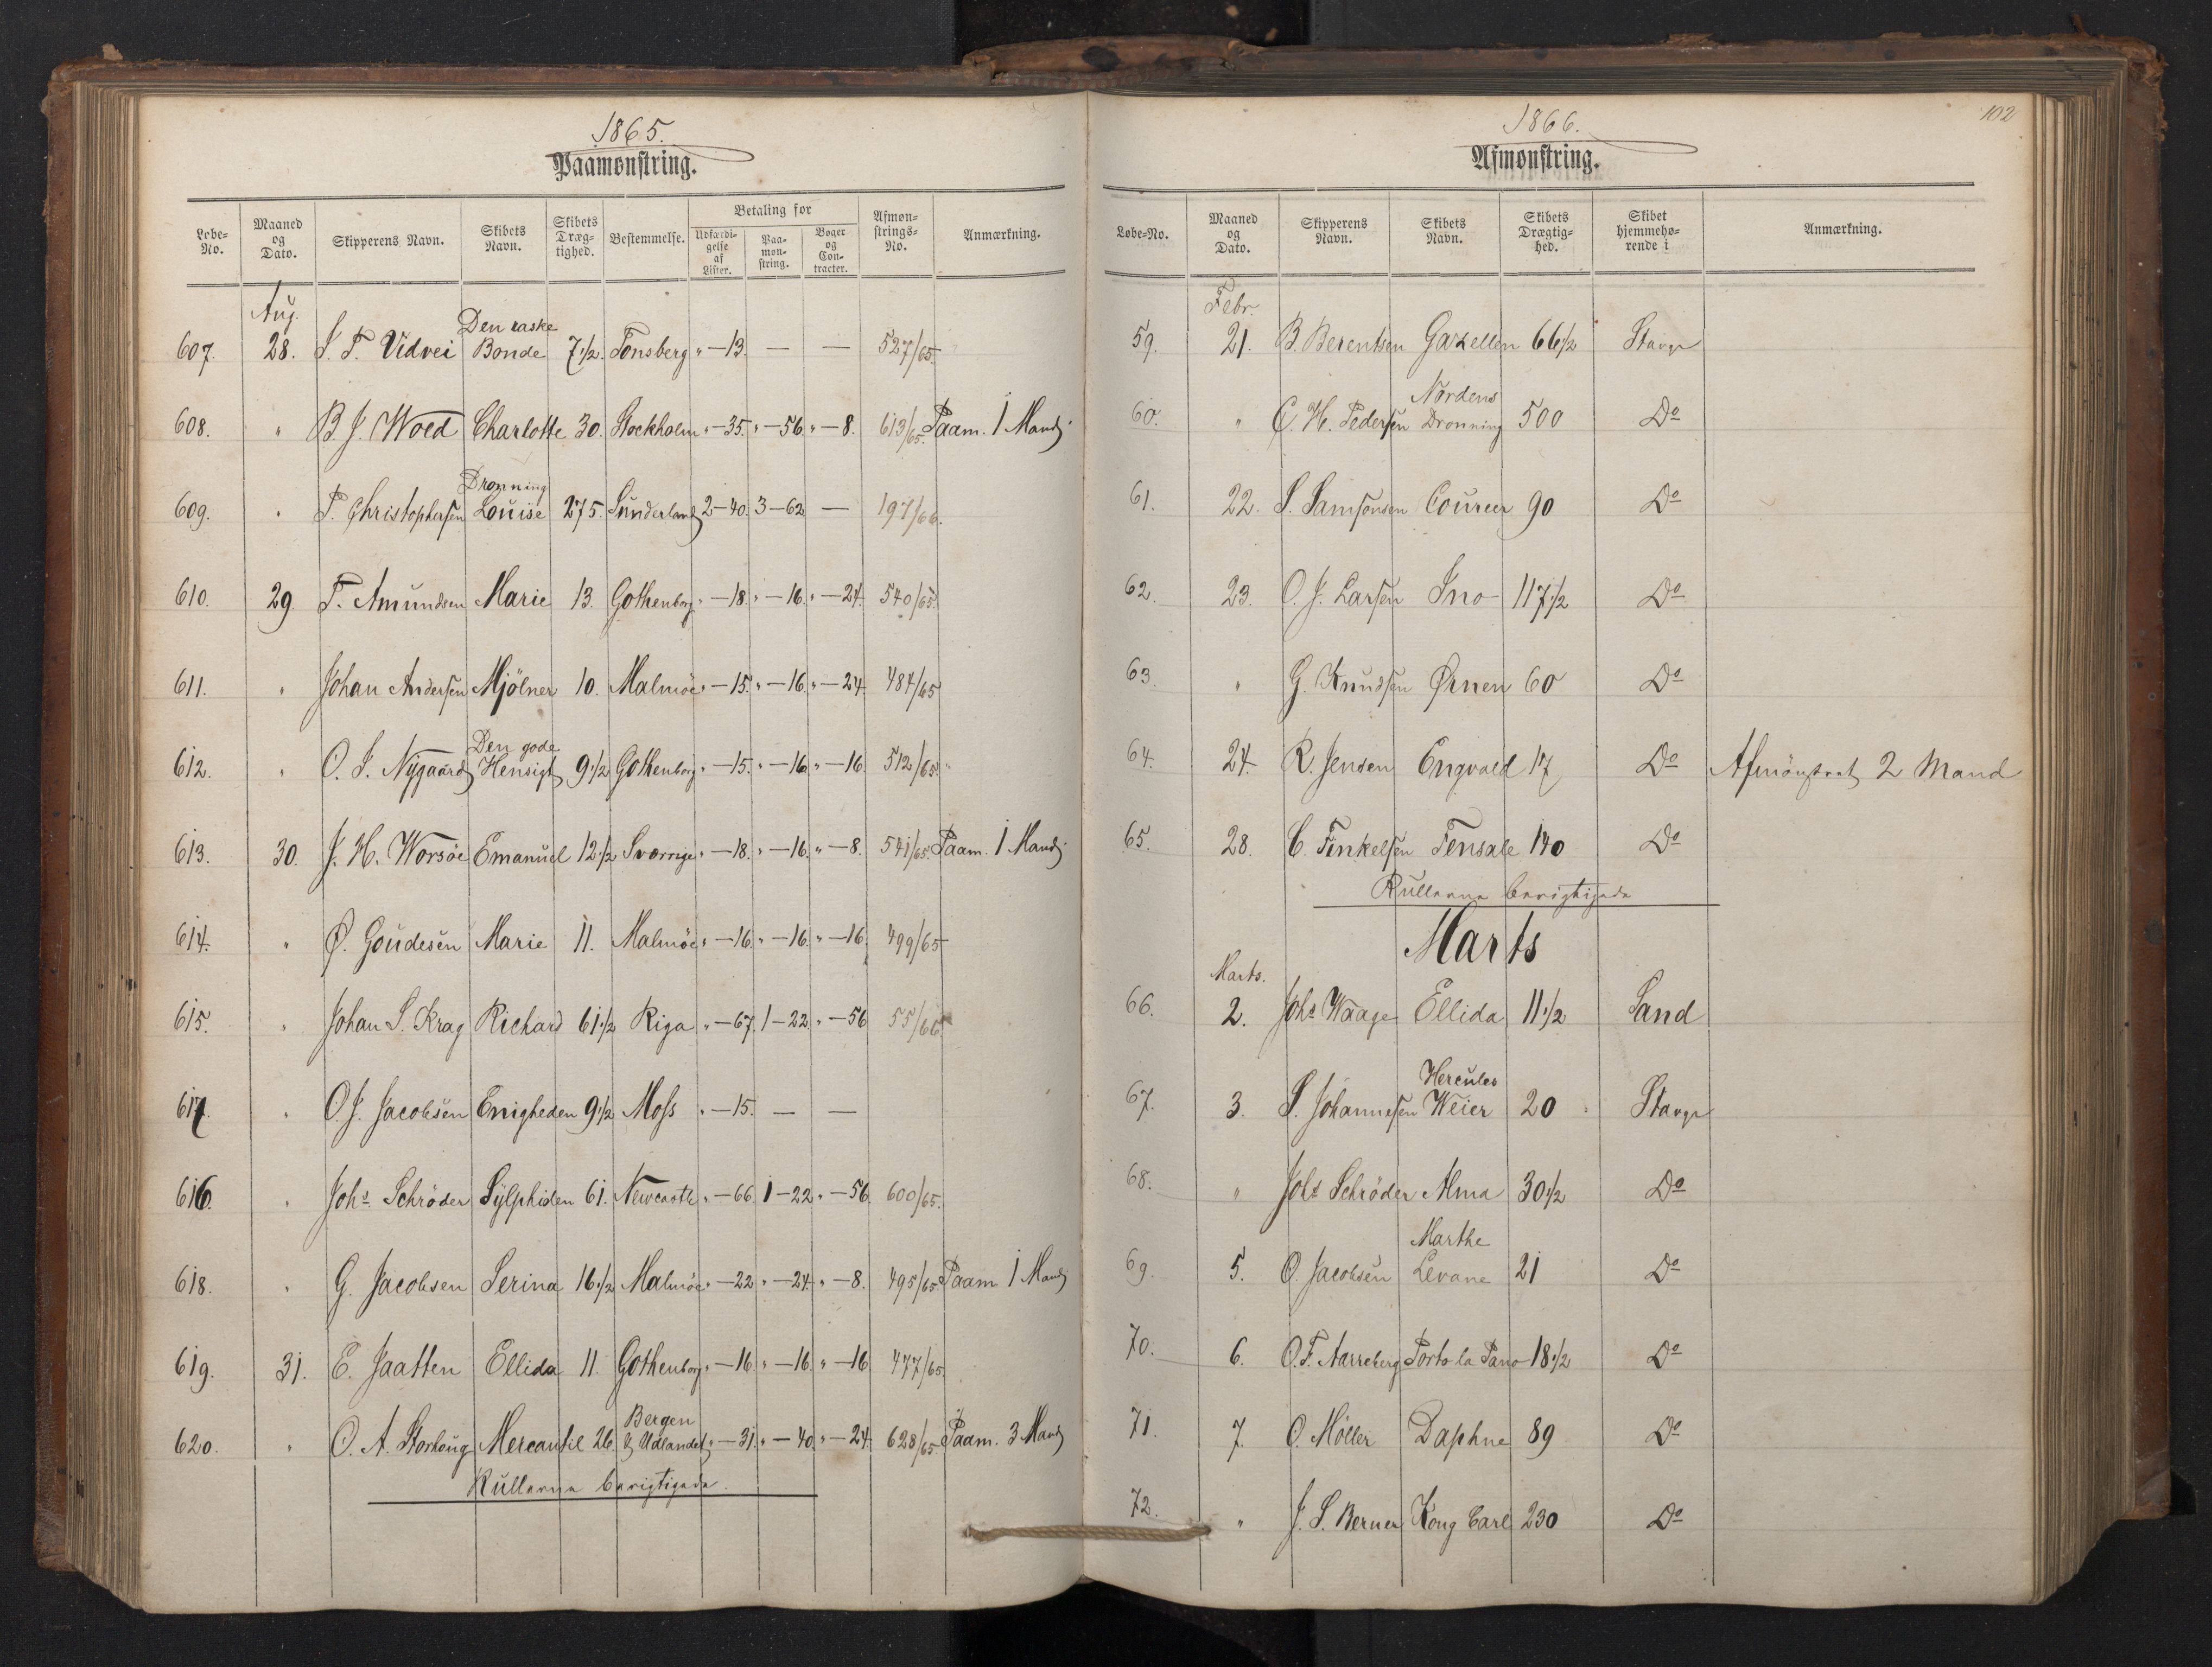 1865.
Paamønstring.
Løbe-No. Maaned og Dato. Skipperens Navn. Skibets Navn. Skibets Dræg-tighed. Bestemmelse. Betaling for Udfærdi-gelse af Lister. Paa-mon-string. Bøger og Con-tracter. Afmøn-strings-No. Anmærkning.
Aug.
607. 28. S. T. Vidvei Den raske Bonde 7 1/2. Tonsberg " — 13. — — 527/65.
608. " B J. Woed Charlotte 30. Stockholm " — 35. " — 56. " — 8. 613/65. Paam. 1 Mand
609. " P. Christophersen Dronning Louise 275. Sunderland 2 — 40. 3 — 62 — 197/66.
610. 29 T. Amundsen Marie 13. Gothenborg " — 18. " — 16. " — 24. 540/65.
611. " Johan Andersen Mjölner 10. Malmöe " — 15. " — 16. " — 24. 484/65
612. " O. I. Nygaard Den gode Hensigt 9 1/2 Gothenborg " — 15. " — 16 " — 16. 512/65.
613. 30. J. H. Worsöe Emanuel 12 1/2 Sverrige " — 18. " — 16. " — 8. 541/65. Paam. 1 Mand
614. " Ø. Goudesen Marie 11. Malmöe " — 16. " — 16. " — 16. 499/65
615. " Johan S. Krag Richard 61 1/2 Riga " — 67. 1 — 22. " — 56 55/66.
617. " O J. Jacobsen Enigheden 9 1/2 Moss " — 15. — —
616. " Johs Schröder Sylphiden 61. Newcastle " — 66. 1 — 22. " — 56. 600/65.
618. " G. Jacobsen Serina 16 1/2 Malmöe " — 22 " — 24. " — 8. 495/65. Paam 1 Mand
619. 31. E. Jaatten Ellida 11. Gothenborg " — 16. " — 16. " — 16 477/65.
620. " O. A. Storhoug Mercantil 26. Bergen & Udlandet " — 31. " — 40. " — 24. 628/65. Paam. 3 Mand
Rullerne berigtigede.
102
1866.
Afmønstring.
Løbe-No. Maaned og Dato. Skipperens Navn. Skibets Navn. Skibets Drægtig-hed. Skibet hjemmehø-rende i Anmærkning.
Febr.
59. 21. B. Berentsen Gazellen 66 1/2 Stavgr
60. " C. H. Pedersen Nordens Dronning 500 Do
61. 22. S. Samsonsen Coureer 90 Do
62. 23. O. J. Larsen Ino 117 1/2 Do
63. " G. Knudsen Ørnen 60 Do
64. 24. R. Jensen Engvald 17 Do Afmönstret 2 Mand
65. 28. C. Finkelsen Tensale 140 Do
Rullerne berigtigede
Marts
Marts.
66. 2. Johs Waage Ellida 11 1/2 Sand
67. 3. S. Johannesen Hercules Weier 20 Stavgr
68. " Johs Schröder Alma 30 1/2 Do
69. 5. O. Jacobsen Marthe Levane 21 Do
70. 6. O. F. Aarreberg Porto la Pano 18 1/2 Do
71. 7. O. Möller Daphne 89 Do
72. " J. S. Berner Kong Carl 230 Do